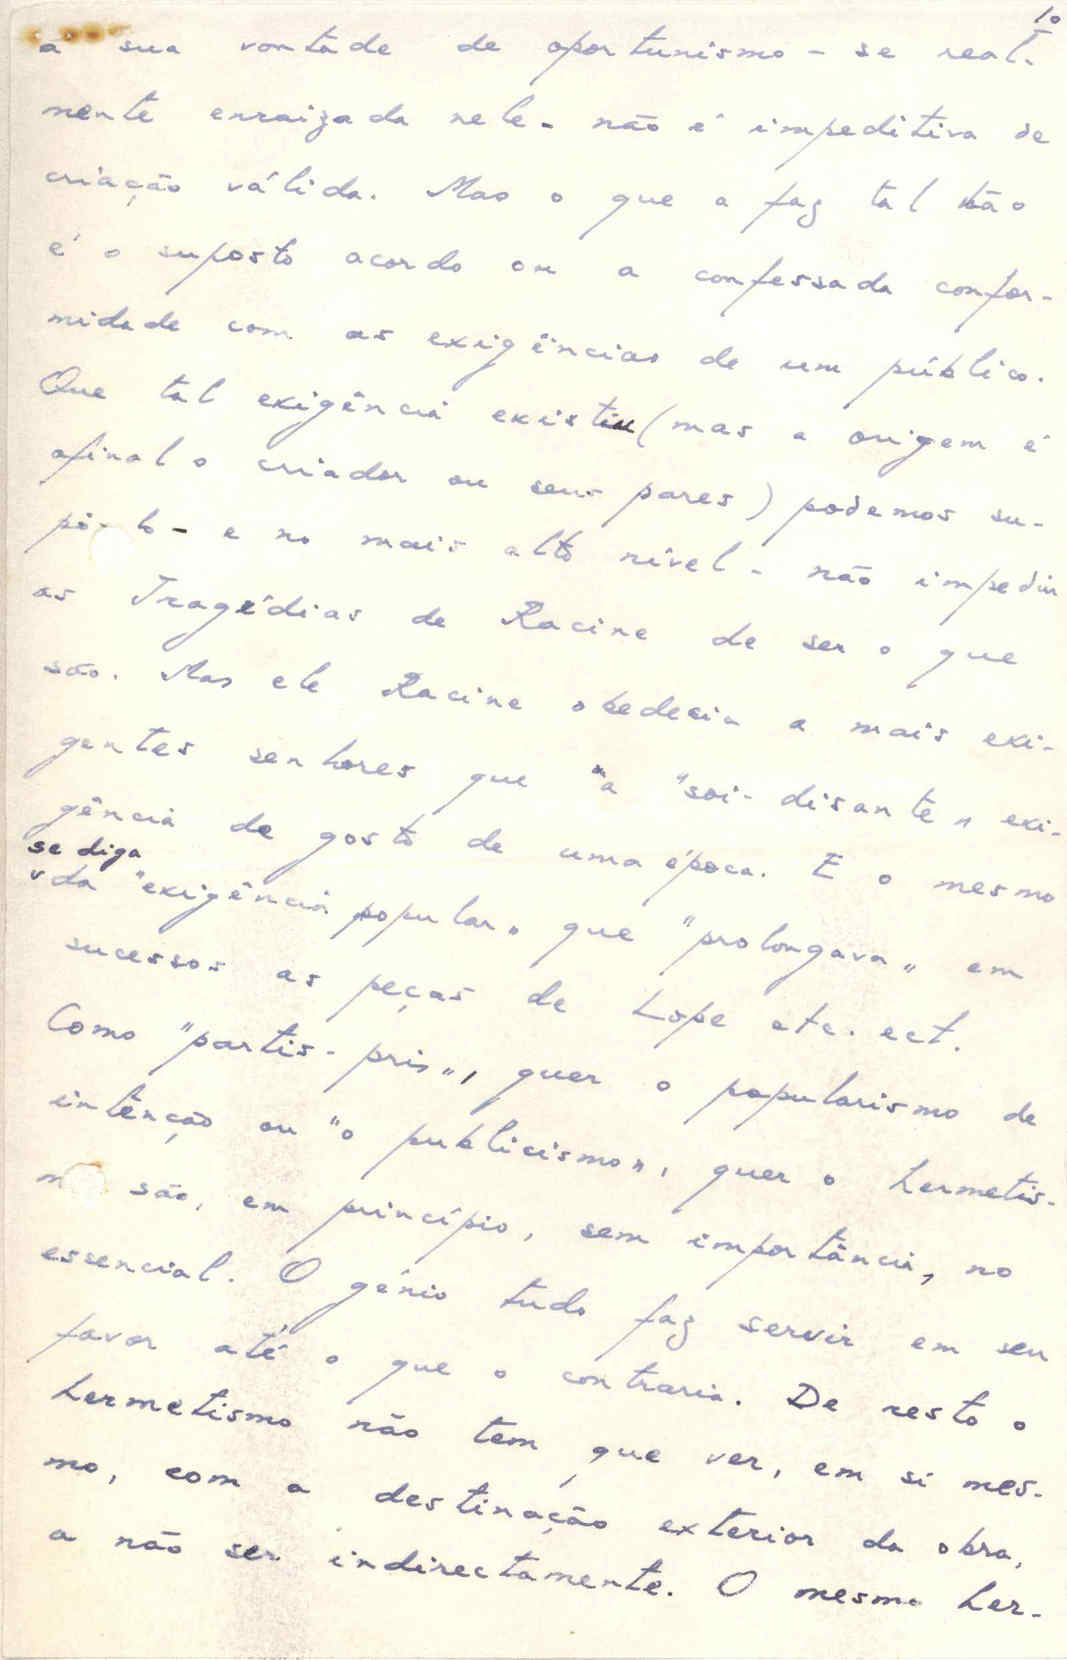 10
a sua vontade de oportunismo - se real-
mente enraizada nele - não é impeditiva de
criação válida. Mas o que a faz tal não
é o suposto acordo ou a confessada confor-
midade com as exigências de um público.
Que tal exigência existiu (mas a origem é
afinal o criador ou seus pares) podemos su-
pô-lo - e no mais alto nível - não impediu
as Tragédias de Racine de ser o que
são. Mas ele Racine obedecia a mais exi-
gentes senhores que a "soi-disante" exi-
gência de gosto de uma época. E o mesmo
se diga
da "exigência popular" que "prolongava" em
sucessos as peças de Lope etc. ect.
Como "partis-pris", quer o popularismo de
intenção ou "o publicismo", quer o hermetis-
são, em princípio, sem importância, no
essencial. O génio tudo faz servir em seu
favor até o que o contraria. De resto o
hermetismo não tem que ver, em si mes-
mo, com a destinação exterior da obra,
a não ser indirectamente. O mesmo her-